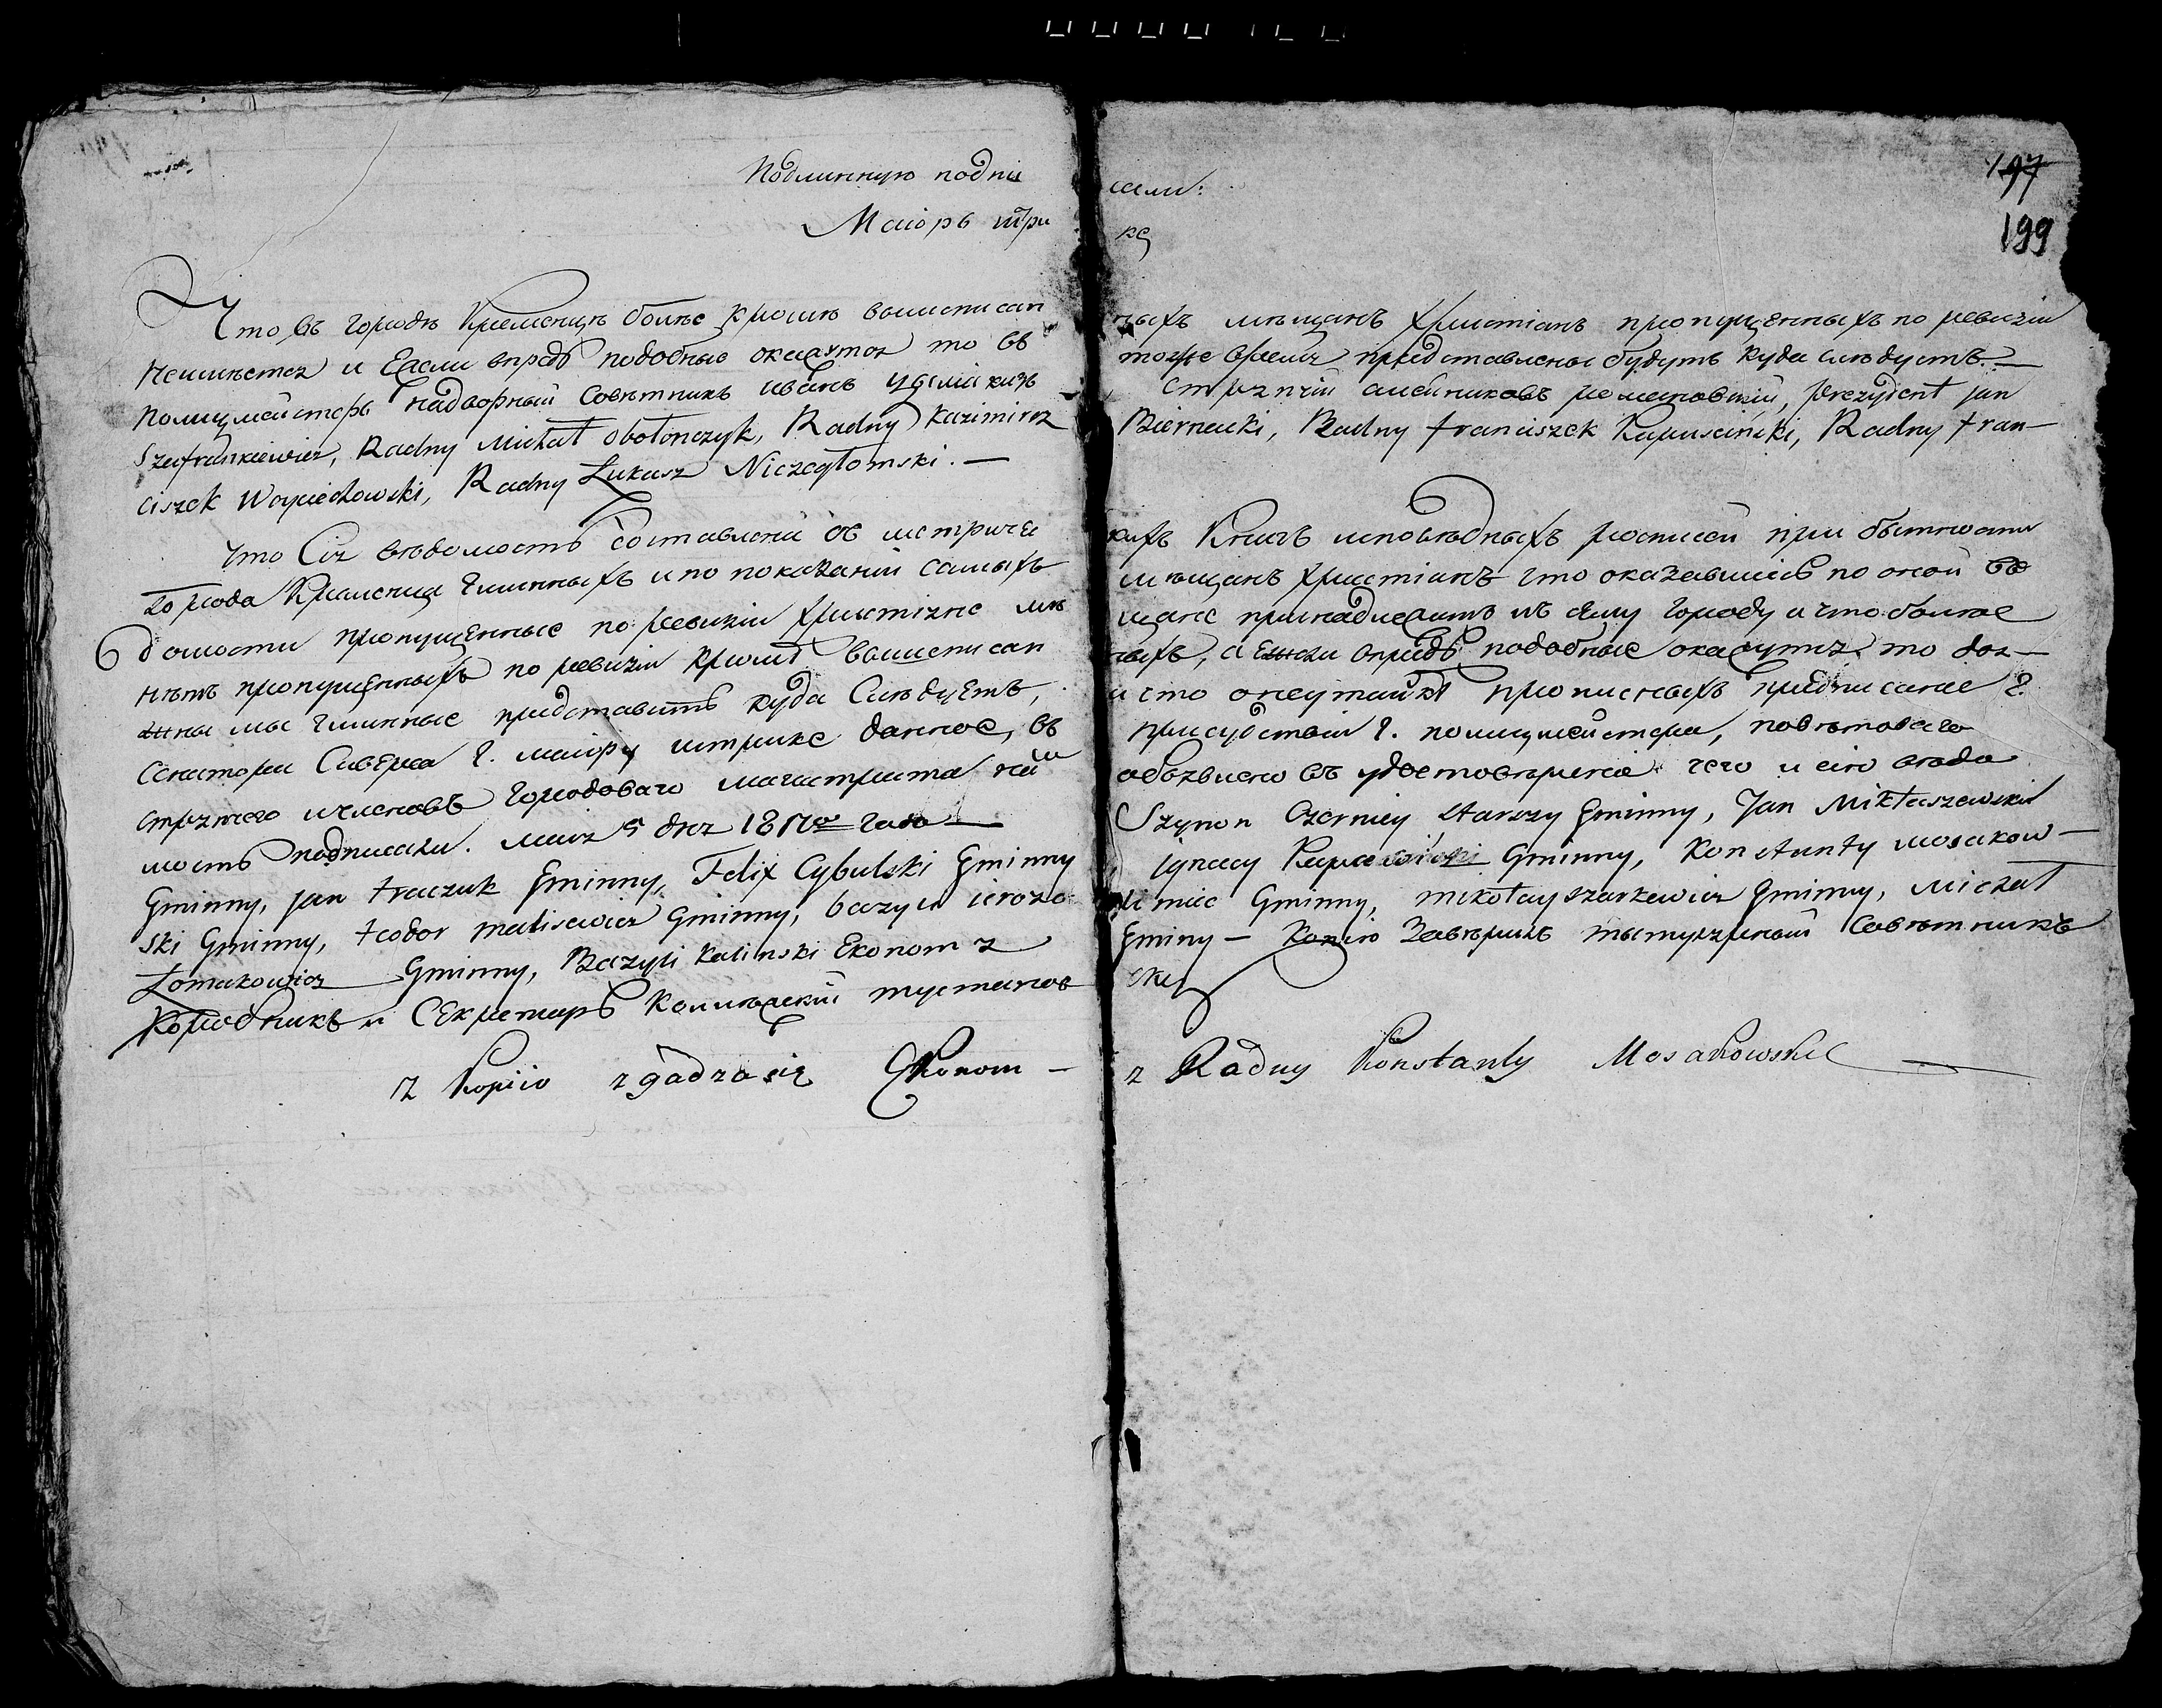 197
199
Подлинную подписали:
Маіоръ Штрике
Что въ городѣ Кременцѣ болѣе кромѣ вышеписанныхъ мѣщанъ християнъ пропущенныхъ по ревизіи
неимѣется и Если впредь подобные окажутся то въ тоже время представлены будутъ куда слѣдуетъ. —
Полицмейстеръ надворный Совѣтникъ иванъ Стряпчій Prezydent jan
Szafrankiewicz, Radny Michał Obołonczyk, Radny Kazimirz Biernacki, Radny franciszek Kapuscinski, Radny fran—
ciszek Woyciechowski, Radny Łukasz Niezegłomski. —
что Сія вѣдомость составлена съ метрическихъ Книгъ исповѣдныхъ росписей при бытности
города Кременца Гминныхъ и по показаній самыхъ мѣщанъ християнъ что оказавшиесь по оной вѣ
домости пропущенные по ревизіи християне мѣщане принадлежатъ къ сему городу и что болѣе
нѣтъ пропущенныхъ по ревизіи кромѣ вышеписанныхъ, а Ежели впредь подобные окажутся то дол—
жны мы гминные представить куда Слѣдуетъ, и что о неутайкѣ прописныхъ предписаніе Г.
Сенатора Сиверса Г. маіору штрике данное, въ присудствіи Г. полицмейстера, повѣтоваго
стряпчего и членовъ городоваго магистрата намъ объявлено въ удостовѣреніе чего и сію вѣдо
мость подписали. маія 5 дня 1817го года — Szymon Czerniey starszy Gminny, Jan Mikłaszewski
Gminny, jan traczuk Gminny, Felix Cybulski Gminny ignacy Gminny, Konstanty mosakow—
ski Gminny, teodor malisewicz Gminny, bazyli Gminny, mikołay szarkewicz Gminny, Michał
Łomakowicz Gminny, Bazyli Kalinski Ekonom z Gminy — Копію Завѣрилъ титулярный Совѣтникъ
и СЕкретарь
z Kopiio zgadza się Ekonom — z Radny Konstanty Mosakowski —